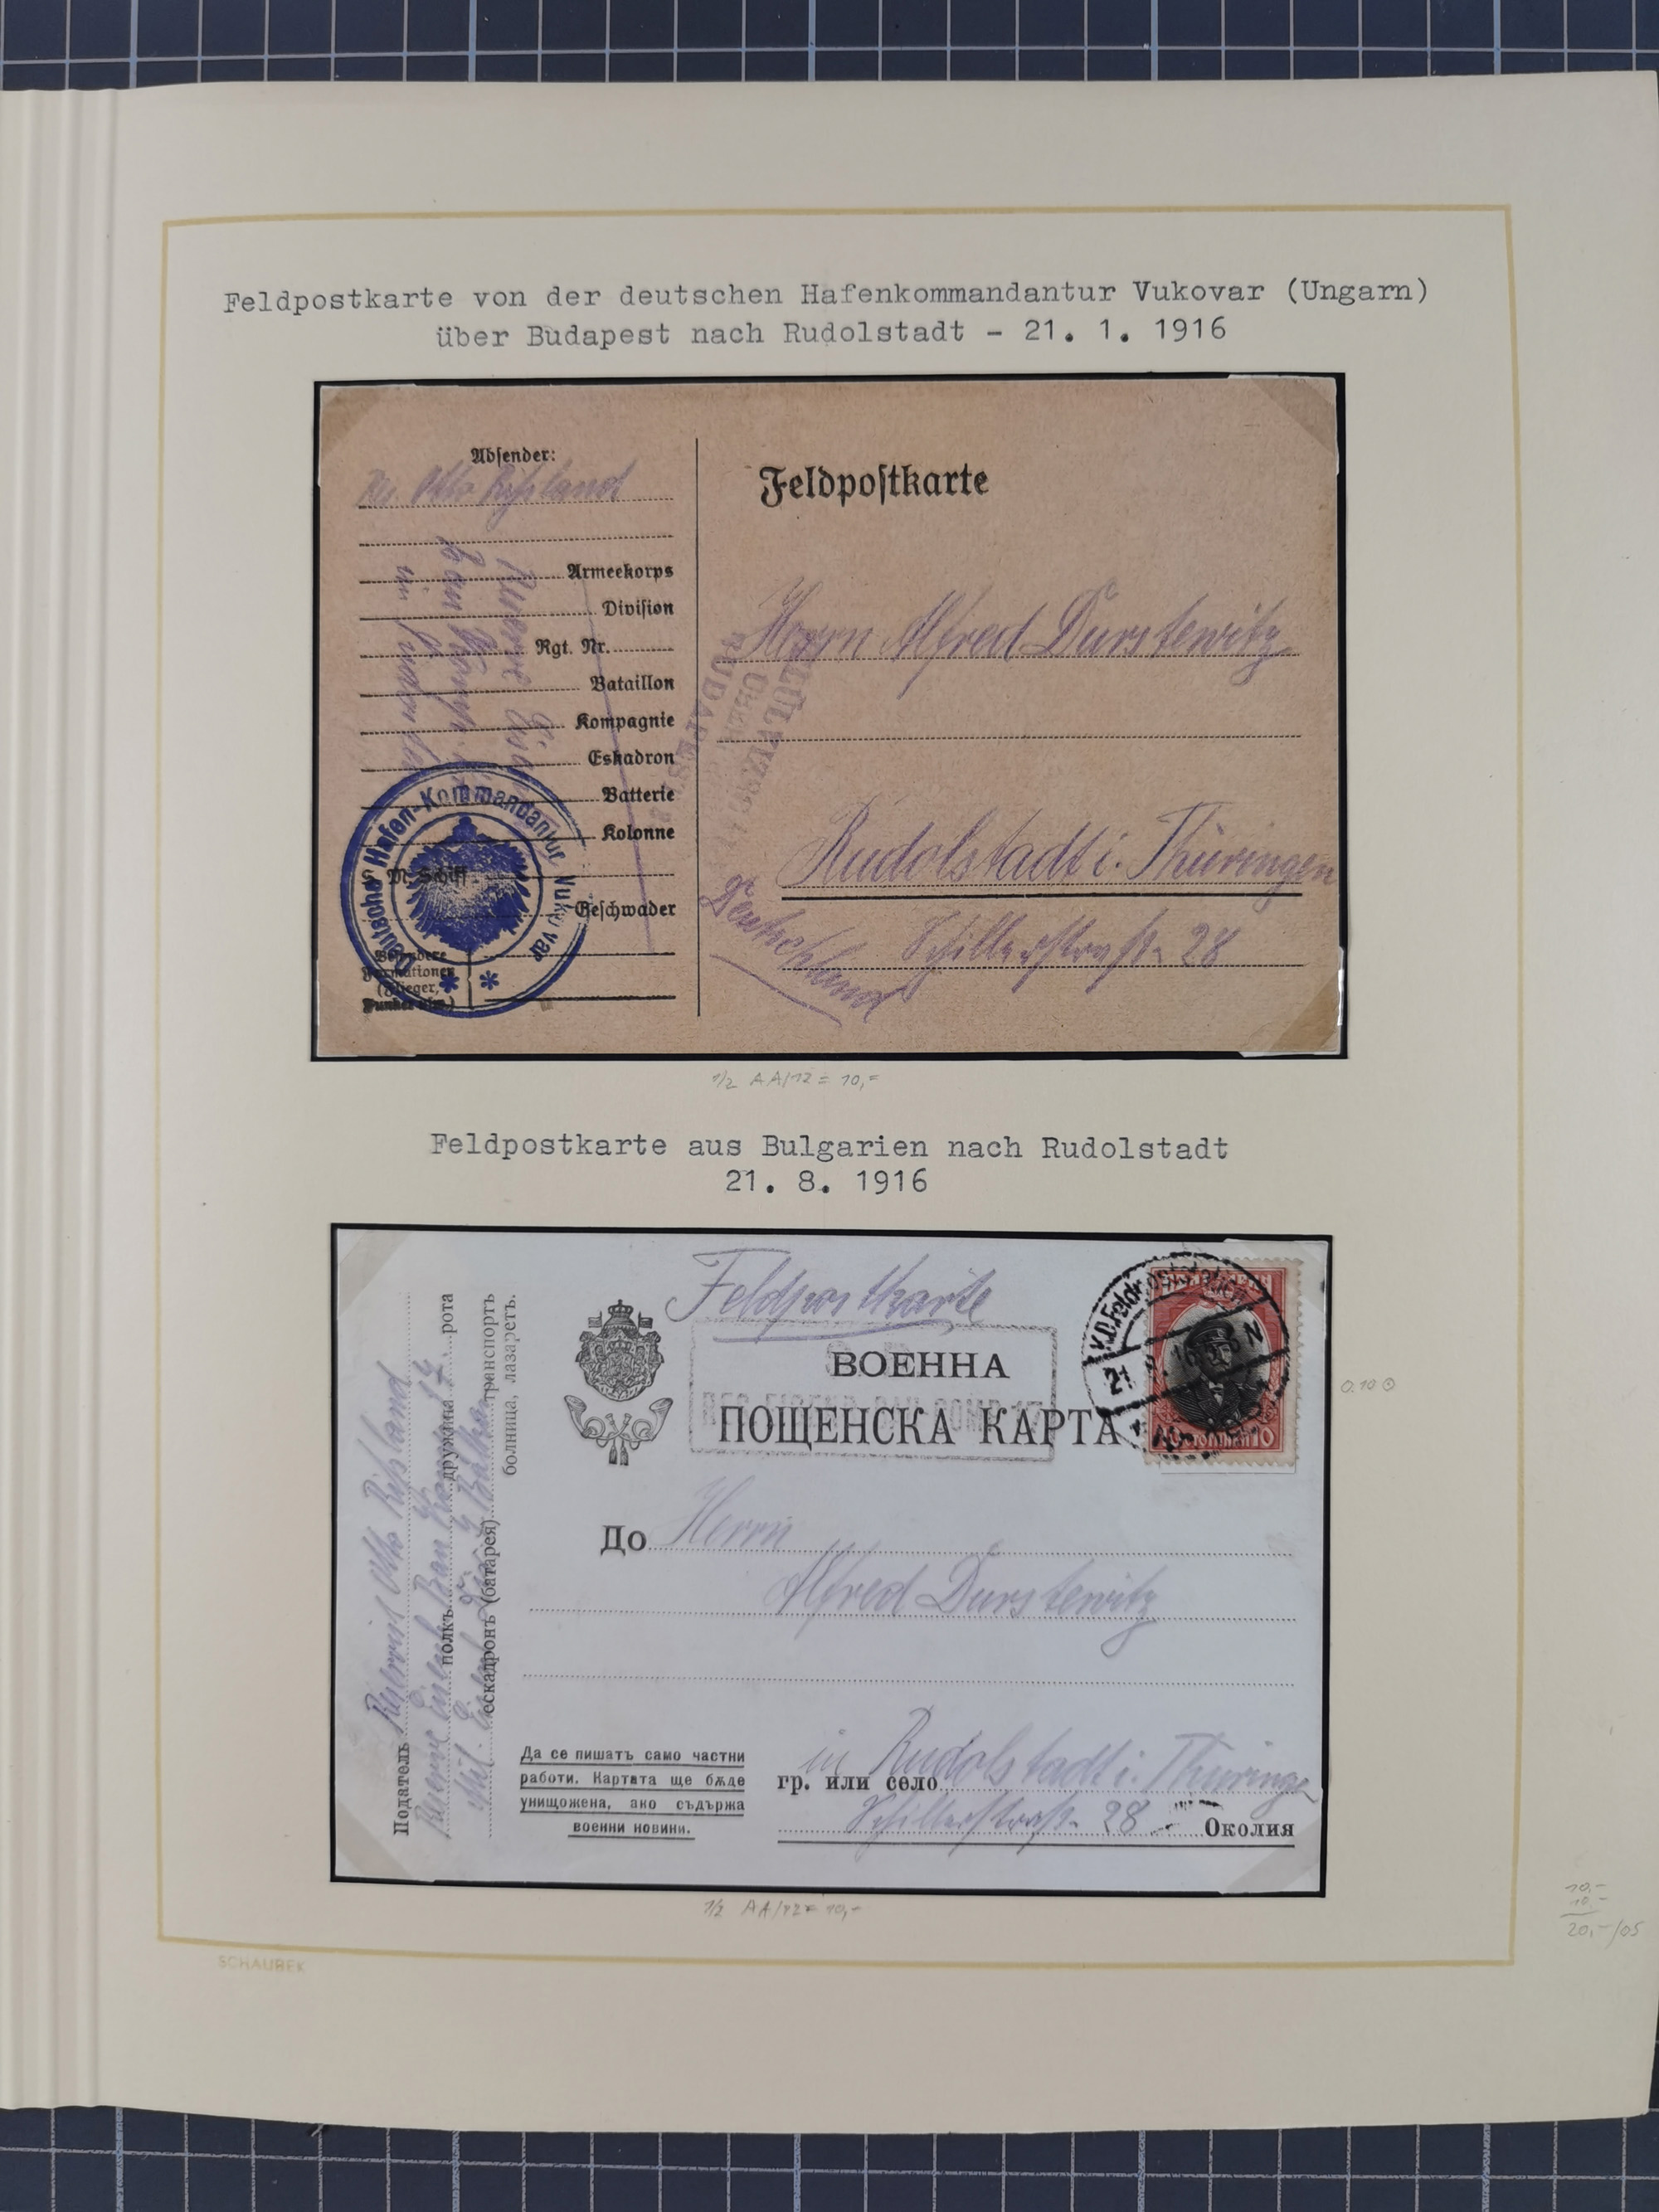 Feldpostkarte von der deutschen Hafenkommandantur Vukovar (Ungarn)
über Budapest nach Rudolstadt - 21. 1. 1916
Absender:
Otto Rißland
Feldpostkarte
Armeekorps
Division
Rgt. Nr.
Bataillon
Kompagnie
Eskadron
Batterie
Kolonne
S. M. Schiff
Geschwader
Besondere
Formationen
(Flieger,
Funker usw.)
Deutsche Hafen-Kommandantur Vukovar
BUDAPEST
Herrn Alfred Durstewitz
Rudolstadt i. Thüringen
Schillerstraße 28
Deutschland
1/2 AA/12 = 10,-
Feldpostkarte aus Bulgarien nach Rudolstadt
21. 8. 1916
Feldpostkarte
ВОЕННА
ПОЩЕНСКА КАРТА
K.D. Feldpoststation
10
0.10
До Herrn
Alfred Durstewitz
in Rudolstadt i. Thüringe
гр. или село
Schillerstraße 28
Околия
Податель
Otto Rißland
полкъ дружина рота
ескадронъ (батарея) транспортъ
болница, лазаретъ.
Да се пишатъ само частни
работи. Картата ще бѫде
унищожена, ако съдържа
военни новини.
1/2 AA/12 = 10,-
10,-
10,-
20,-/05
SCHAUBEK